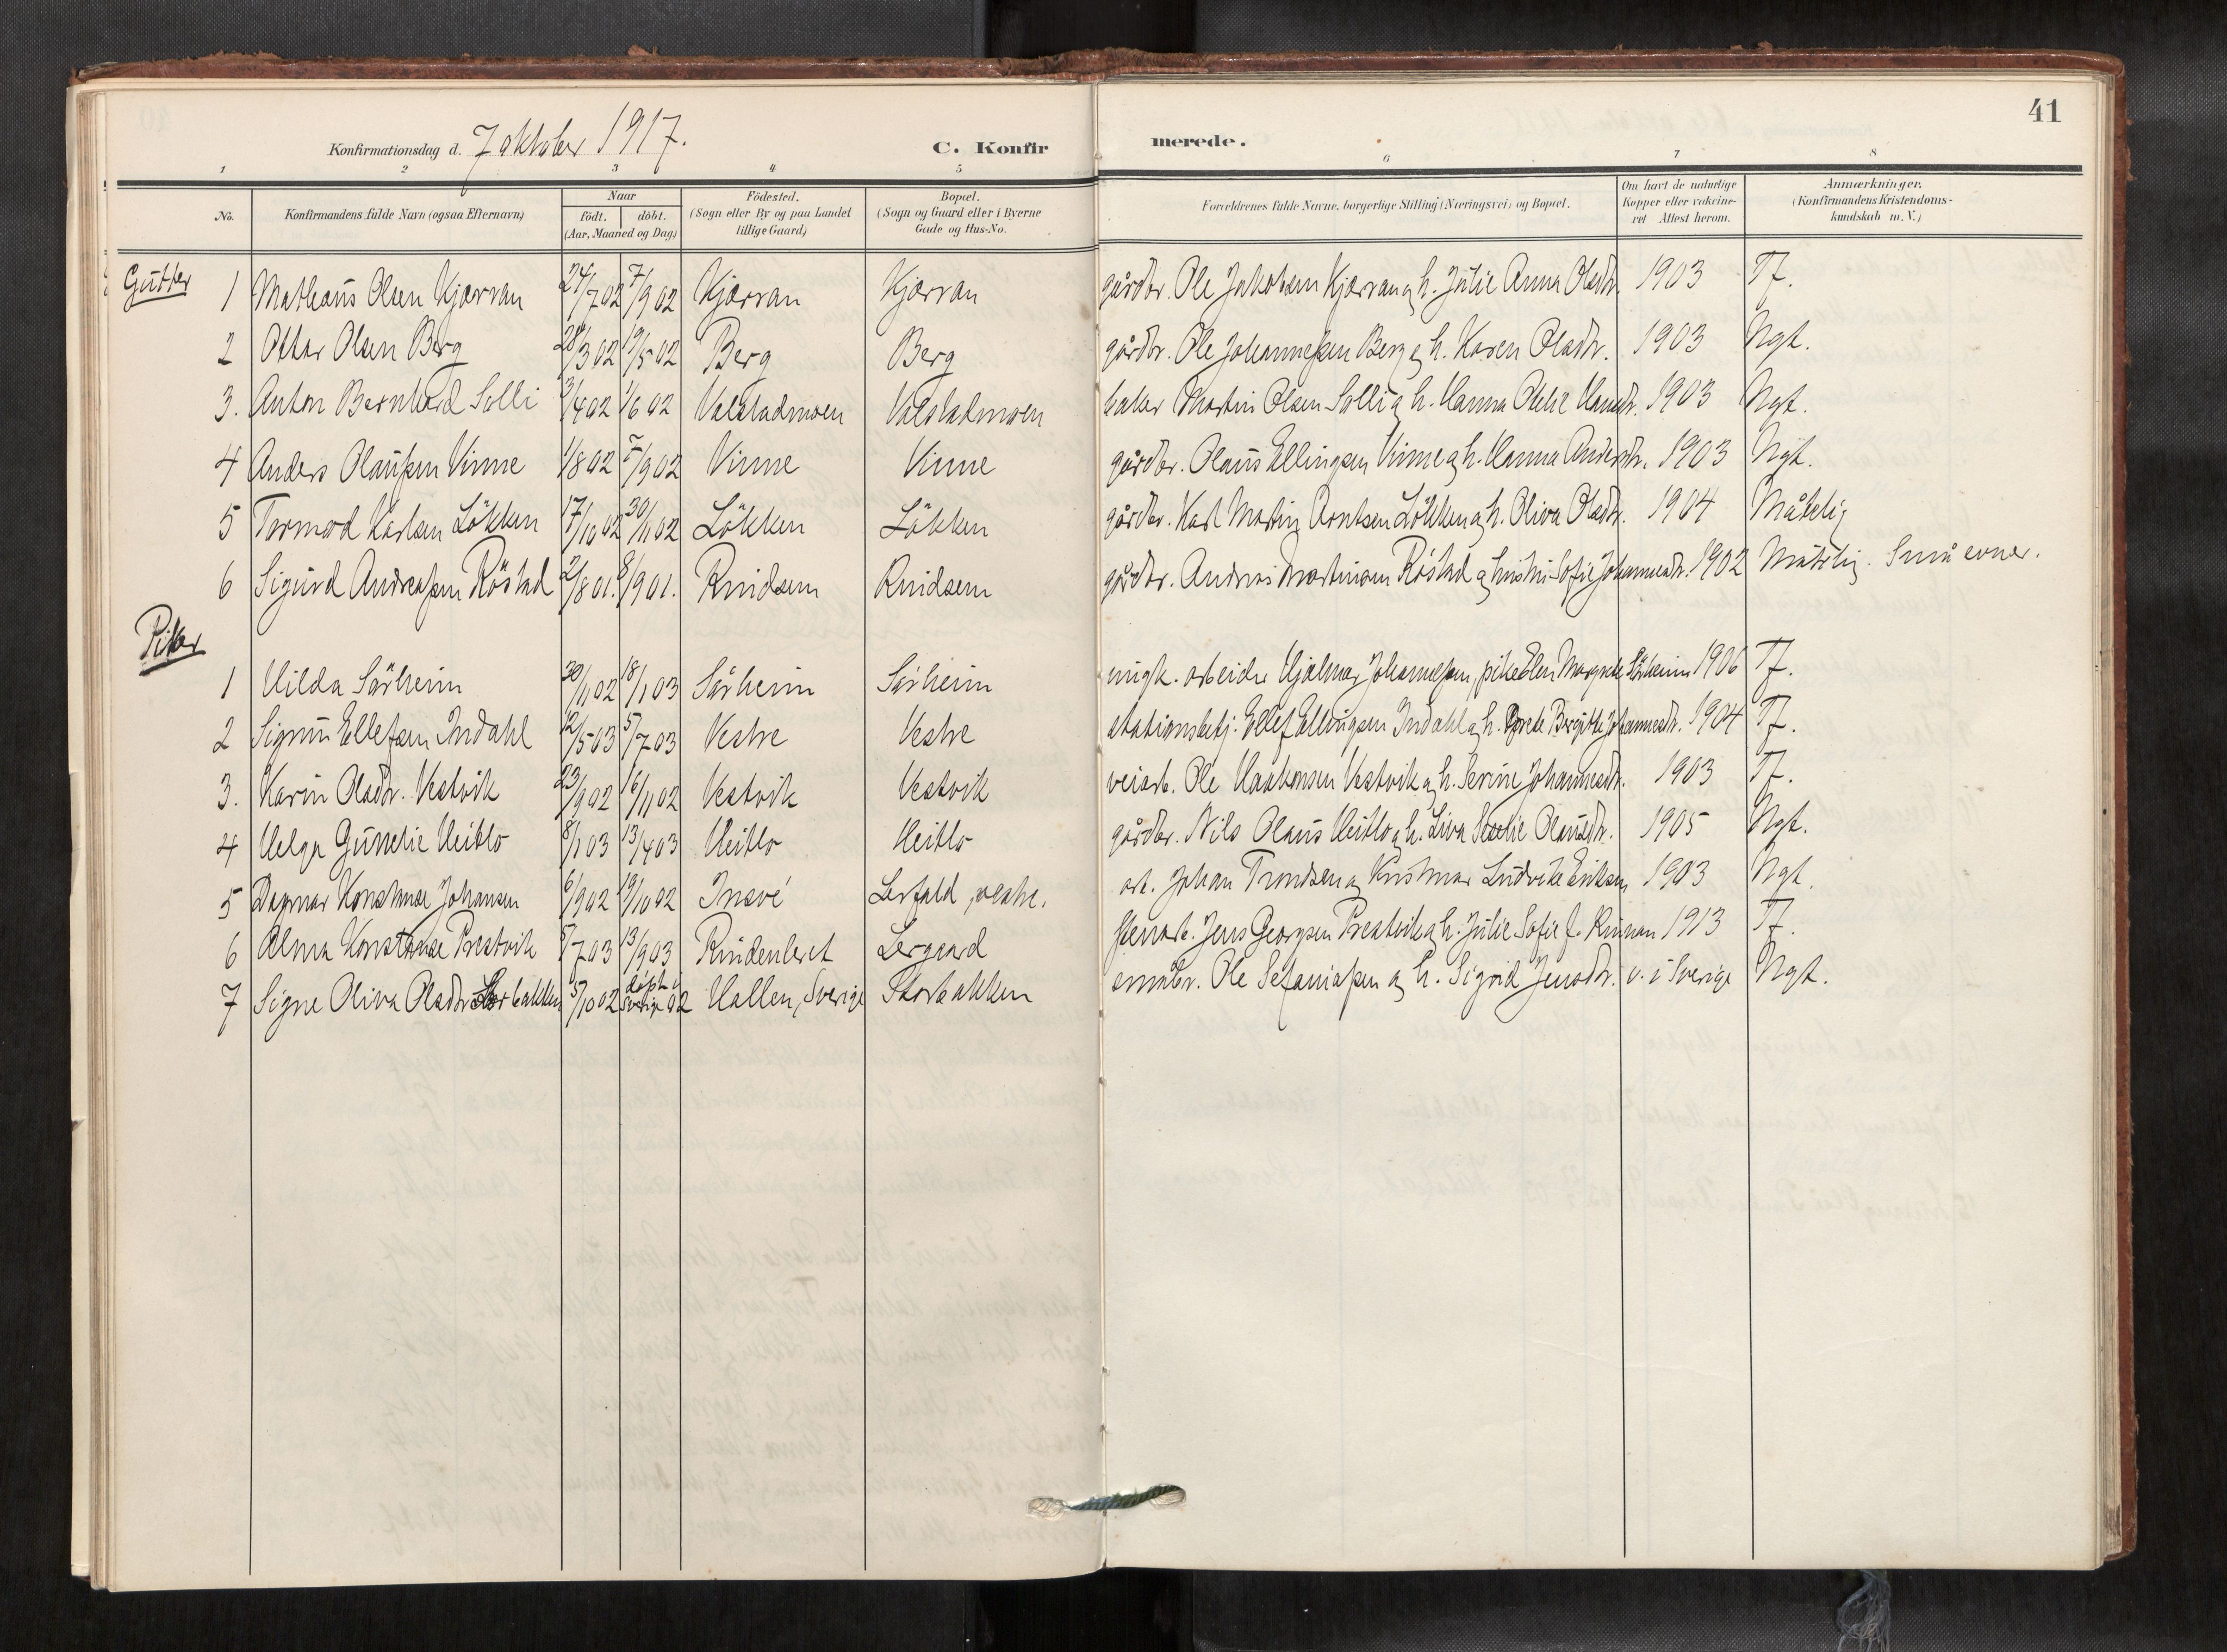 41
Konfirmationsdag d. 7 oktober 1917. C. Konfirmerede.
1 2 3 4 5 6 7 8
No. Konfirmandens fulde Navn (ogsaa Efternavn) Naar födt. döbt. (Aar, Maaned og Dag) Födested. (Sogn eller By og paa Landet tillige Gaard) Bopæl. (Sogn og Gaard eller i Byerne Gade og Hus-No. Forældrenes fulde Navne, borgerlige Stilling (Næringsvei) og Bopæl. Om havt de naturlige Kopper eller vakcineret Attest herom. Anmærkninger. (Konfirmandens Kristendomskundskab m. V.)
Gutter
1 Matheus Olsen Kjærran 24/7 02 7/9 02 Kjærran Kjærran gårdbr. Ole Jakobsen Kjærran og h. Julie Anna Olsdtr. 1903 Tf.
2 Ottar Olsen Berg 28/3 02 19/5 02 Berg Berg gårdbr. Ole Johannessen Berg og h. Karen Olsdtr. 1903 Ngt.
3. Anton Bernhard Solli 3/4 02 1/6 02 Valstadmoen Valstadmoen baker Martin Olsen Solli og h. Hanna Hansdtr. 1903 Ngt.
4 Anders Olaussen Vinne 1/8 02 7/9 02 Vinne Vinne gårdbr. Olaus Ellingsen Vinne og h. Hanna Andersdtr. 1903 Ngt.
5 Tormod Karlsen Lökken 17/10 02 30/11 02 Lökken Lökken gårdbr. Karl Martin Arntsen Lökken og h. Oliva Olsdtr. 1904 Måtelig
6 Sigurd Andreassen Röstad 2/8 01. 8/9 01. Rindsem Rindsem gårdbr. Andreas Martinsen Röstad og hustru Sofie Johannesdtr. 1902 Måtelig. Små evner.
Piker
1 Hilda Sörheim 30/11 02 18/1 03 Sörheim Sörheim ungk. arbeider Hjalmar Johannessen, pike Elen Margrete Sörheim 1906 Tf.
2 Sigrun Ellefsen Indahl 12/5 03 5/7 03 Vestre Vestre stationsbetj. Ellef Ellingsen Indahl og h. Grete Birgitte Johannesdtr. 1904 Tf.
3. Karin Olsdtr. Vestvik 23/9 02 16/11 02 Vestvik Vestvik veiarb. Ole Haakonsen Vestvik og h. Serine Johannesdtr. 1903 Tf.
4 Helga Gunelie Heitlo 8/1 03 13/4 03 Heitlo Heitlo gårdbr. Nils Olaus Heitlo og h. Liva Olausdtr. 1905 Ngt.
5 Dagmar Konstanse Johansen 6/9 02 19/10 02 Insvé Lerfald, vestre. arb. Johan Trondsen og Ludvikke Eriksen 1903 Ngt.
6 Alma Konstanse Prestvik 5/7 03 13/9 03 Rindenleret Lergaard stenarb. Jens Georgsen Prestvik og h. Julie Sofie J. Rinnan 1913 Tf.
7 Signe Oliva Olsdtr. Storbakken 5/10 02 döpt i Sverige 02 Hallen, Sverige Storbakken småbr. Ole Sefaniassen og h. Sigrid Jensdtr. v. i Sverige Ngt.